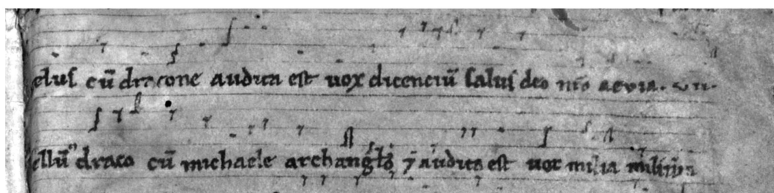 elus cū dracone audita est uox dicenciū salus deo nr̄o aeuia.
ellū draco cū michaele archangl̄o ⁊ audita est uox milia miliū